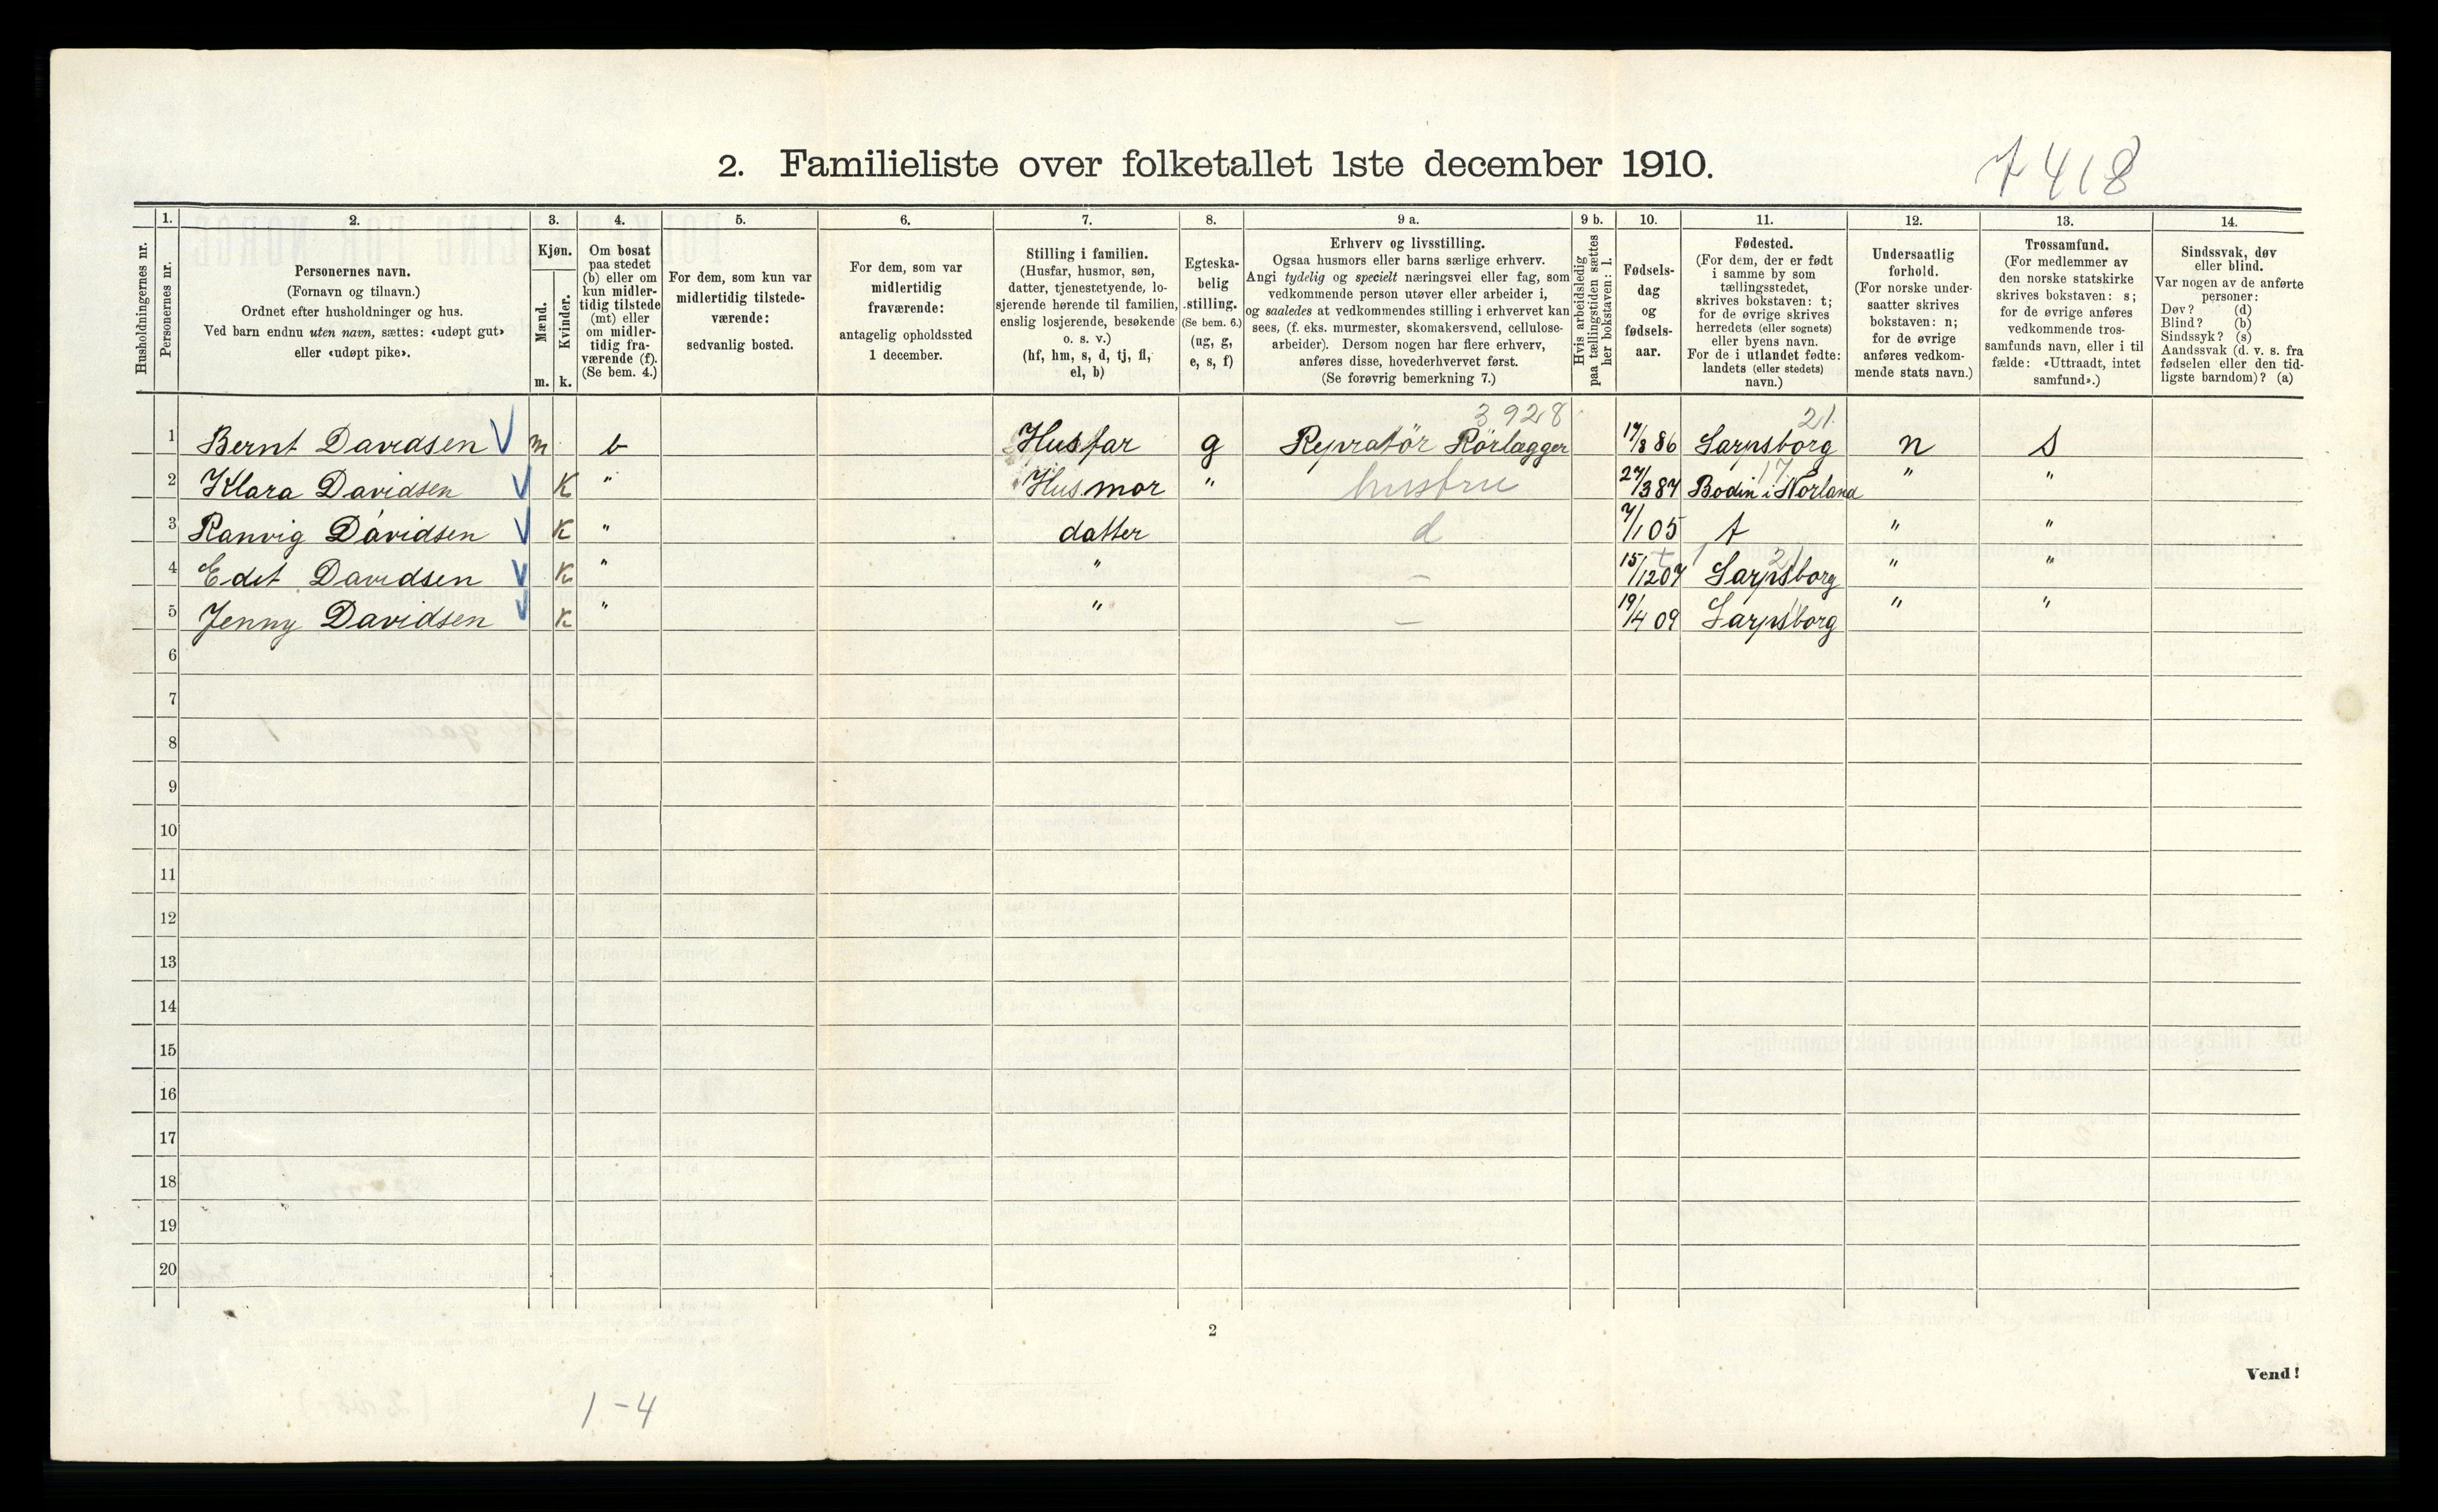 7418
2. Familieliste over folketallet 1ste december 1910.
Husholdningernes nr.
1.
Personernes nr.
2.
Personernes navn.
(Fornavn og tilnavn.)
Ordnet efter husholdninger og hus.
Ved barn endnu uten navn, sættes: «udøpt gut»
eller «udøpt pike».
3.
Kjøn.
Mænd.
Kvinder.
m. k.
4.
Om bosat
paa stedet
(b) eller om
kun midler-
tidig tilstede
(mt) eller
om midler-
tidig fra-
værende (f).
(Se bem. 4.)
5.
For dem, som kun var
midlertidig tilstede-
værende:
sedvanlig bosted.
6.
For dem, som var
midlertidig
fraværende:
antagelig opholdssted
1 december.
7.
Stilling i familien.
(Husfar, husmor, søn,
datter, tjenestetyende, lo-
sjerende hørende til familien,
enslig losjerende, besøkende
o. s. v.)
(hf, hm, s, d, tj, fl,
el, b)
8.
Egteska-
belig
stilling.
(Se bem. 6.)
(ug, g,
e, s, f)
9 a.
Erhverv og livsstilling.
Ogsaa husmors eller barns særlige erhverv.
Angi tydelig og specielt næringsvei eller fag, som
vedkommende person utøver eller arbeider i,
og saaledes at vedkommendes stilling i erhvervet kan
sees, (f. eks. murmester, skomakersvend, cellulose-
arbeider). Dersom nogen har flere erhverv,
anføres disse, hovederhvervet først.
(Se forøvrig bemerkning 7.)
9 b.
Hvis arbeidsledig
paa tællingstiden sættes
her bokstaven: l.
10.
Fødsels-
dag
og
fødsels-
aar.
11.
Fødested.
(For dem, der er født
i samme by som
tællingsstedet,
skrives bokstaven: t;
for de øvrige skrives
herredets (eller sognets)
eller byens navn.
For de i utlandet fødte:
landets (eller stedets)
navn.)
12.
Undersaatlig
forhold.
(For norske under-
saatter skrives
bokstaven: n;
for de øvrige
anføres vedkom-
mende stats navn.)
13.
Trossamfund.
(For medlemmer av
den norske statskirke
skrives bokstaven: s;
for de øvrige anføres
vedkommende tros-
samfunds navn, eller i til
fælde: «Uttraadt, intet
samfund».)
14.
Sindssvak, døv
eller blind.
Var nogen av de anførte
personer:
Døv? (d)
Blind? (b)
Sindssyk? (s)
Aandssvak (d. v. s. fra
fødselen eller den tid-
ligste barndom)? (a)
3928 21
1 Bernt Davidsen V m b Husfar g Repratör Rörlægger 17/8 86 Sarpsborg n s
17
2 Klara Davidsen V K " Husmor " hustru 27/3 87 Bodin i Norland " "
3 Ranvig Davidsen V K " datter d 7/1 05 t " "
21
4 Edit Davidsen V K " " – 15/12 07 Sarpsborg " "
5 Jenny Davidsen V K " " – 19/4 09 Sarpsborg " "
6
7
8
9
10
11
12
13
14
15
16
17
18
19
20
2
Vend!
1-4